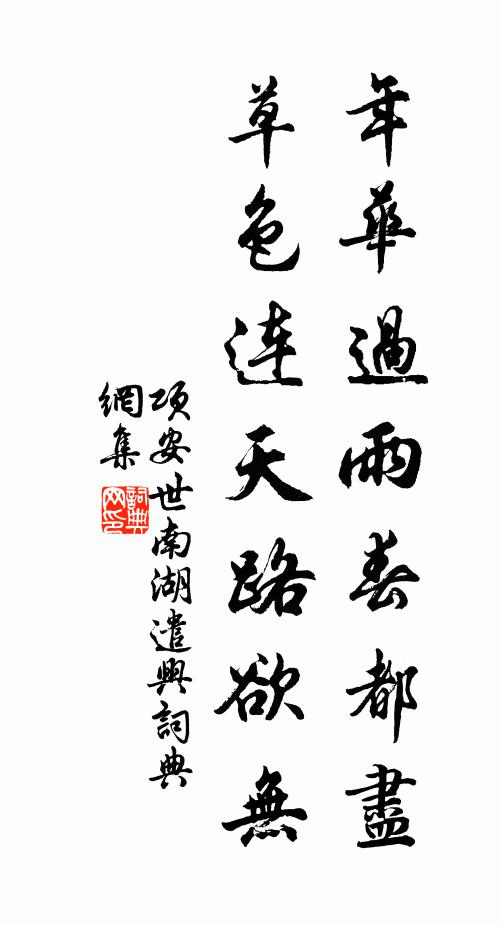 年華過雨春都盡
草色連天路欲無
項安世南湖遣興詞典
網集
詞典
网印